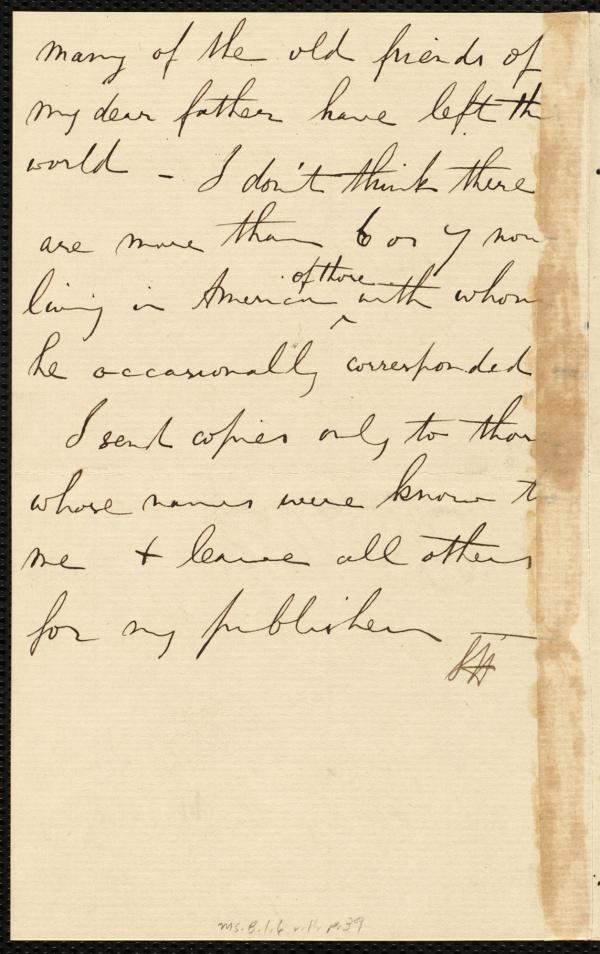 many of the old friends of
my dear father have left th
world - I don't think there
are more than 6 or 7 now
of those
living in America ^ with whom
he occasionally corresponded
I send copies only to those
whose names were known t
me + leave all others
for my publisher —
ms. B.1.6 v.11. p.39